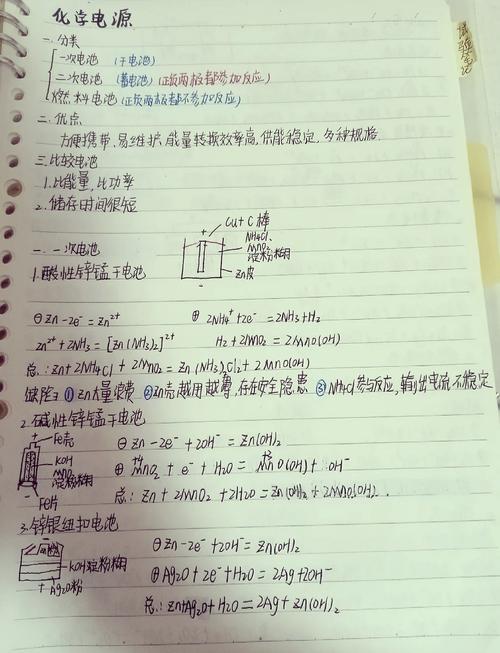 化学电源
一.分类
一次电池 (干电池)
二次电池 (蓄电池) (正负两极都参加反应)
燃料电池 (正负两极都不参加反应)
二.优点
方便携带、易维护,能量转换效率高,供能稳定,多种规格.
三.比较电池
1.比能量,比功率
2.储存时间很短
一.一次电池
1.酸性锌锰干电池
+
Cu+C棒
NH4Cl、
MnO2
淀粉糊
Zn皮
-
⊖Zn-2e⁻=Zn²⁺ ⊕ 2NH4⁺+2e⁻=2NH3+H2
Zn²⁺+2NH3=[Zn(NH3)2]²⁺ H2+2MnO2=2MnO(OH)
总:Zn+2NH4Cl+2MnO2=Zn(NH3)2Cl2+2MnO(OH)
缺陷:①Zn大量浪费 ②Zn壳越用越薄,存在安全隐患 ③NH4Cl参与反应,输出电流不稳定
2.碱性锌锰干电池
+
Fe壳
KOH
MnO2
淀粉糊
Fe片
-
⊖ Zn-2e⁻+2OH⁻=Zn(OH)2
⊕ +4 MnO2+e⁻+H2O=+3 MnO(OH)+OH⁻
总:Zn+2MnO2+2H2O=Zn(OH)2+2MnO(OH).
3.锌银纽扣电池
KOH淀粉糊
+ Ag2O粉
⊖Zn-2e⁻+2OH⁻=Zn(OH)2
⊕Ag2O+2e⁻+H2O=2Ag+2OH⁻
总:Zn+Ag2O+H2O=2Ag+Zn(OH)2